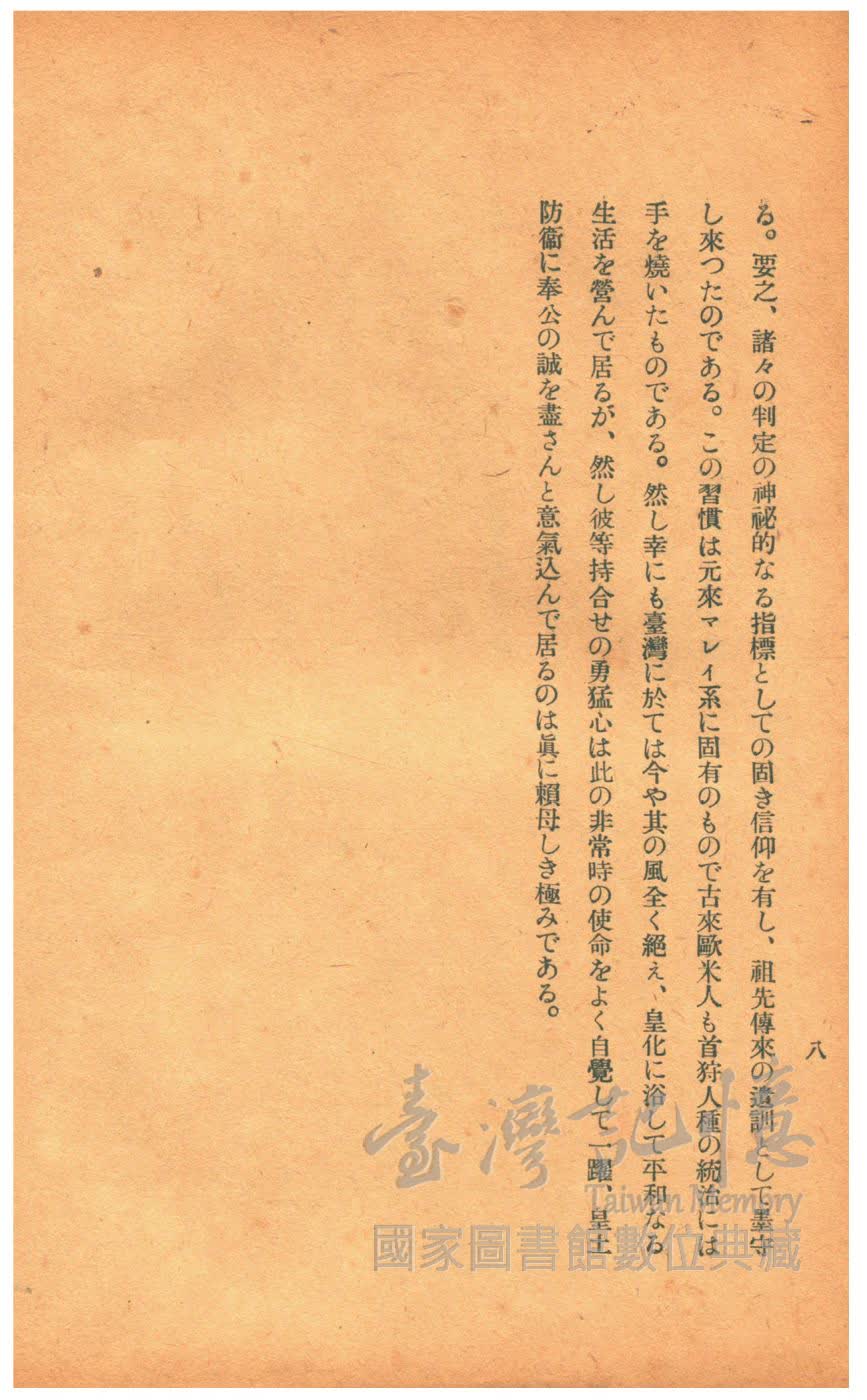 八
る。要之、諸々の判定の神祕的なる指標としての固き信仰を有し、祖先傳來の遺訓として墨守
し來つたのである。この習慣は元來マレイ系に固有のもので古來歐米人も首狩人種の統治には
手を燒いたものである。然し幸にも臺灣に於ては今や其の風全く絕え、皇化に浴して平和なる
生活を營んで居るが、然し彼等持合せの勇猛心は此の非常時の使命をよく自覺して一躍、皇土
防衞に奉公の誠を盡さんと意氣込んで居るのは眞に賴母しき極みである。
臺灣記憶
Taiwan Memory
國家圖書館數位典藏